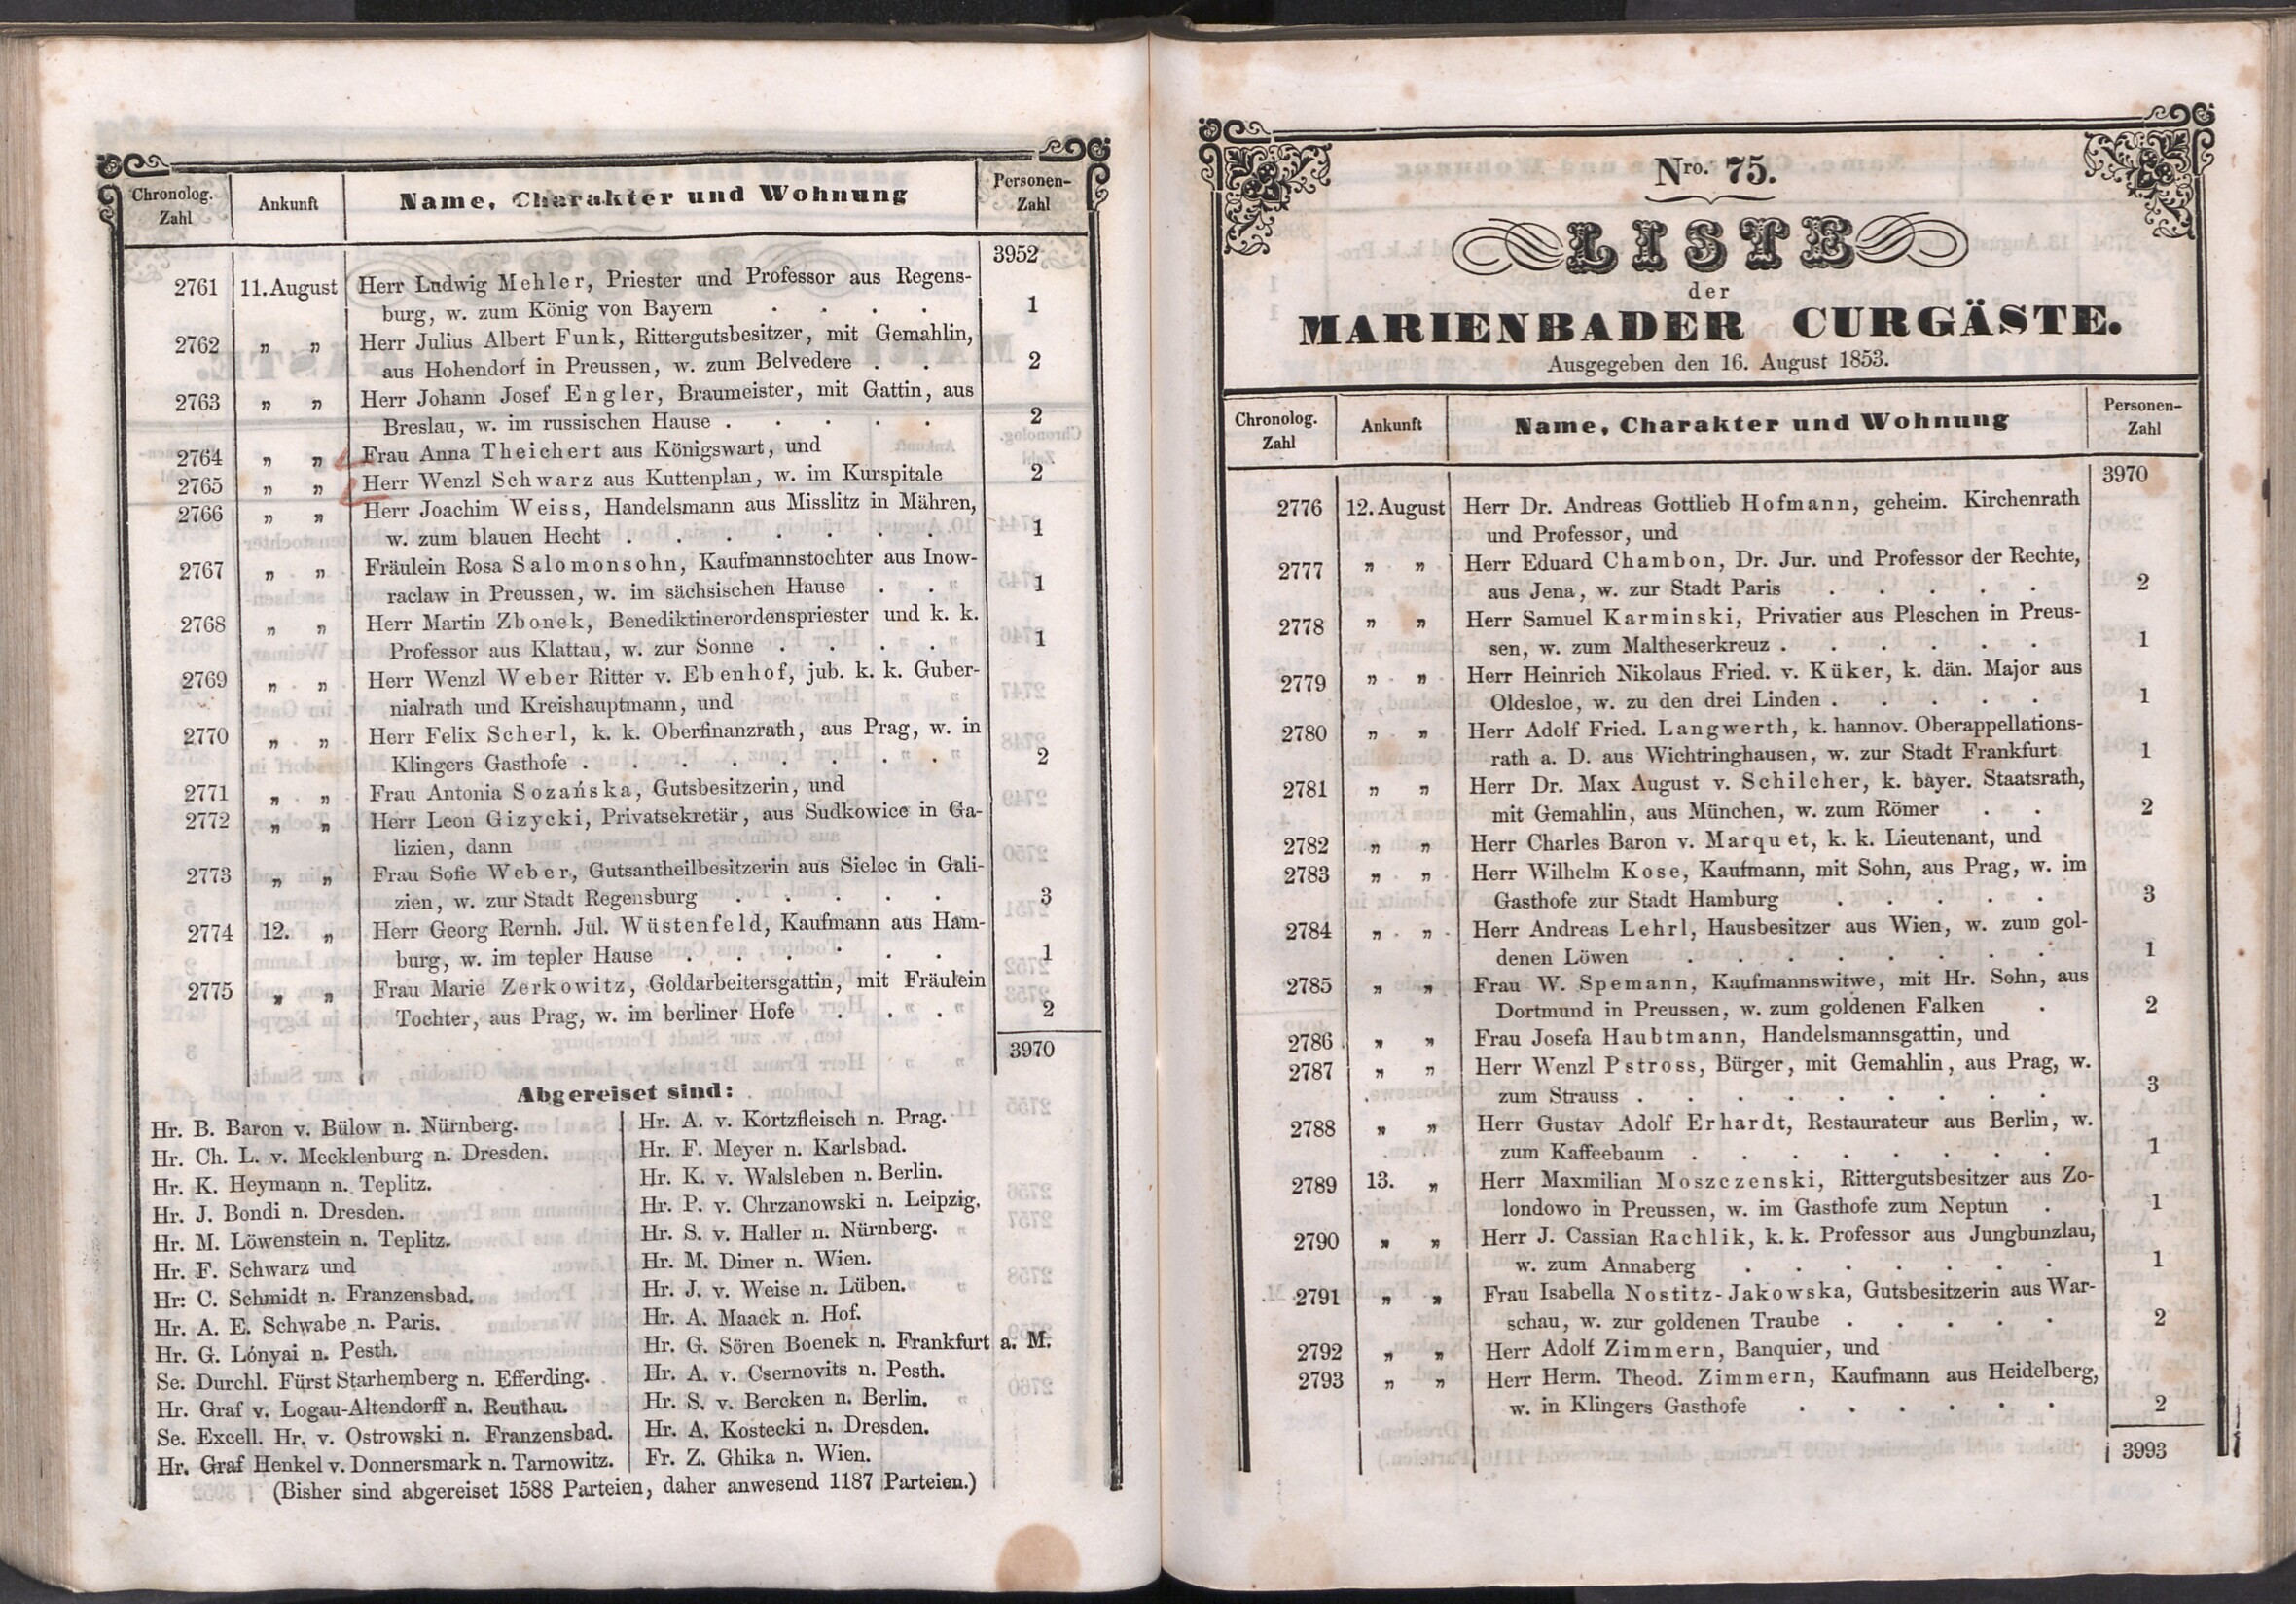 Chronolog. Zahl | Ankunft | Name, Charakter und Wohnung | Personen-Zahl
3952
2761 11. August Herr Ludwig Mehler, Priester und Professor aus Regens-
burg, w. zum König von Bayern . . . . 1
2762 „ „ Herr Julius Albert Funk, Rittergutsbesitzer, mit Gemahlin,
aus Hohendorf in Preussen, w. zum Belvedere . . 2
2763 „ „ Herr Johann Josef Engler, Braumeister, mit Gattin, aus
Breslau, w. im russischen Hause . . . . . 2
2764 „ „ Frau Anna Theichert aus Königswart, und
2765 „ „ Herr Wenzl Schwarz aus Kuttenplan, w. im Kurspitale 2
2766 „ „ Herr Joachim Weiss, Handelsmann aus Misslitz in Mähren,
w. zum blauen Hecht . . . . . . . 1
2767 „ „ Fräulein Rosa Salomonsohn, Kaufmannstochter aus Inow-
raclaw in Preussen, w. im sächsischen Hause . . 1
2768 „ „ Herr Martin Zbonek, Benediktinerordenspriester und k. k.
Professor aus Klattau, w. zur Sonne . . . . 1
2769 „ „ Herr Wenzl Weber Ritter v. Ebenhof, jub. k. k. Guber-
nialrath und Kreishauptmann, und
2770 „ „ Herr Felix Scherl, k. k. Oberfinanzrath, aus Prag, w. in
Klingers Gasthofe . . . . . . . . 2
2771 „ „ Frau Antonia Sozańska, Gutsbesitzerin, und
2772 „ „ Herr Leon Gizycki, Privatsekretär, aus Sudkowice in Ga-
lizien, dann
2773 „ „ Frau Sofie Weber, Gutsantheilbesitzerin aus Sielec in Gali-
zien, w. zur Stadt Regensburg . . . . . 3
2774 12. „ Herr Georg Rernh. Jul. Wüstenfeld, Kaufmann aus Ham-
burg, w. im tepler Hause . . . . . . 1
2775 „ „ Frau Marie Zerkowitz, Goldarbeitersgattin, mit Fräulein
Tochter, aus Prag, w. im berliner Hofe . . . 2
3970
Abgereiset sind:
Hr. B. Baron v. Bülow n. Nürnberg.
Hr. Ch. L. v. Mecklenburg n. Dresden.
Hr. K. Heymann n. Teplitz.
Hr. J. Bondi n. Dresden.
Hr. M. Löwenstein n. Teplitz.
Hr. F. Schwarz und
Hr: C. Schmidt n. Franzensbad.
Hr. A. E. Schwabe n. Paris.
Hr. G. Lónyai n. Pesth.
Se. Durchl. Fürst Starhemberg n. Efferding.
Hr. Graf v. Logau-Altendorff n. Reuthau.
Se. Excell. Hr. v. Ostrowski n. Franzensbad.
Hr. Graf Henkel v. Donnersmark n. Tarnowitz.
Hr. A. v. Kortzfleisch n. Prag.
Hr. F. Meyer n. Karlsbad.
Hr. K. v. Walsleben n. Berlin.
Hr. P. v. Chrzanowski n. Leipzig.
Hr. S. v. Haller n. Nürnberg.
Hr. M. Diner n. Wien.
Hr. J. v. Weise n. Lüben.
Hr. A. Maack n. Hof.
Hr. G. Sören Boenek n. Frankfurt a. M.
Hr. A. v. Csernovits n. Pesth.
Hr. S. v. Bercken n. Berlin.
Hr. A. Kostecki n. Dresden.
Fr. Z. Ghika n. Wien.
(Bisher sind abgereiset 1588 Parteien, daher anwesend 1187 Parteien.)
Nro. 75.
LISTE
der
MARIENBADER CURGÄSTE.
Ausgegeben den 16. August 1853.
Chronolog. Zahl | Ankunft | Name, Charakter und Wohnung | Personen-Zahl
3970
2776 12. August Herr Dr. Andreas Gottlieb Hofmann, geheim. Kirchenrath
und Professor, und
2777 „ „ Herr Eduard Chambon, Dr. Jur. und Professor der Rechte,
aus Jena, w. zur Stadt Paris . . . . . 2
2778 „ „ Herr Samuel Karminski, Privatier aus Pleschen in Preus-
sen, w. zum Maltheserkreuz . . . . . . 1
2779 „ „ Herr Heinrich Nikolaus Fried. v. Küker, k. dän. Major aus
Oldesloe, w. zu den drei Linden . . . . . 1
2780 „ „ Herr Adolf Fried. Langwerth, k. hannov. Oberappellations-
rath a. D. aus Wichtringhausen, w. zur Stadt Frankfurt 1
2781 „ „ Herr Dr. Max August v. Schilcher, k. bayer. Staatsrath,
mit Gemahlin, aus München, w. zum Römer . . 2
2782 „ „ Herr Charles Baron v. Marquet, k. k. Lieutenant, und
2783 „ „ Herr Wilhelm Kose, Kaufmann, mit Sohn, aus Prag, w. im
Gasthofe zur Stadt Hamburg . . . . . 3
2784 „ „ Herr Andreas Lehrl, Hausbesitzer aus Wien, w. zum gol-
denen Löwen . . . . . . . . 1
2785 „ „ Frau W. Spemann, Kaufmannswitwe, mit Hr. Sohn, aus
Dortmund in Preussen, w. zum goldenen Falken . 2
2786 „ „ Frau Josefa Haubtmann, Handelsmannsgattin, und
2787 „ „ Herr Wenzl Pstross, Bürger, mit Gemahlin, aus Prag, w.
zum Strauss . . . . . . . . . 3
2788 „ „ Herr Gustav Adolf Erhardt, Restaurateur aus Berlin, w.
zum Kaffeebaum . . . . . . . . 1
2789 13. „ Herr Maxmilian Moszczenski, Rittergutsbesitzer aus Zo-
londowo in Preussen, w. im Gasthofe zum Neptun . 1
2790 „ „ Herr J. Cassian Rachlik, k. k. Professor aus Jungbunzlau,
w. zum Annaberg . . . . . . . 1
2791 „ „ Frau Isabella Nostitz-Jakowska, Gutsbesitzerin aus War-
schau, w. zur goldenen Traube . . . . . 2
2792 „ „ Herr Adolf Zimmern, Banquier, und
2793 „ „ Herr Herm. Theod. Zimmern, Kaufmann aus Heidelberg,
w. in Klingers Gasthofe . . . . . . 2
3993